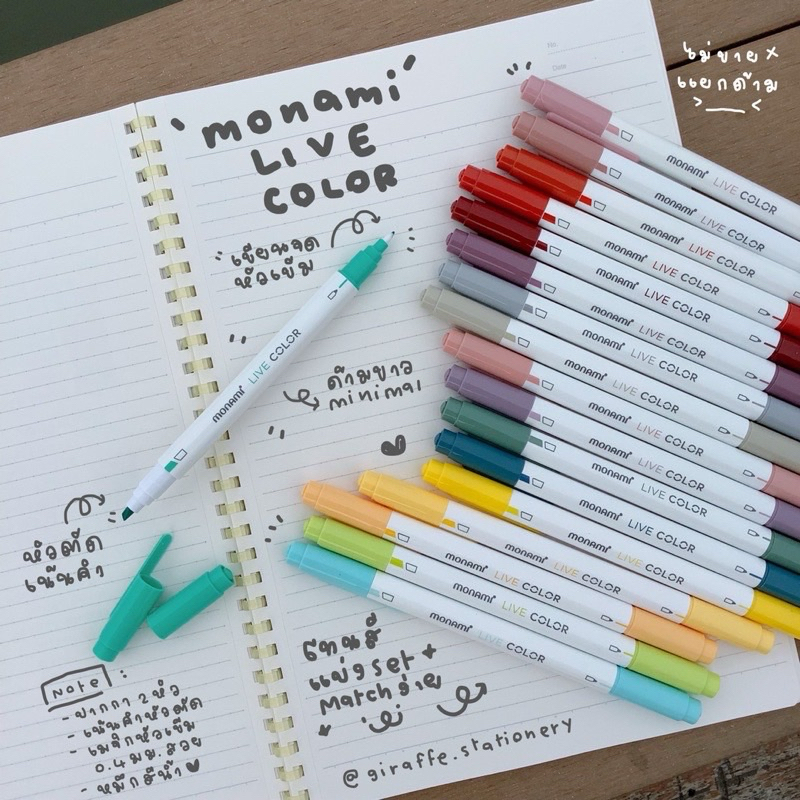 ไม่ขาย ×
แยกด้าม
monami
LIVE
COLOR
เขียนจด
หัวเข็ม
ด้ามขาว
minimal
หัวตัด
เน้นคำ
Note
- ปากกา 2 หัว
- เน้นคำหัวตัด
- เมจิกหัวเข็ม
0.4 มม. สวย
- หมึกสีน้ำ
โทนสี
แบ่ง set +
Match ง่าย
@giraffe.stationery
No.
Date
monami LIVE COLOR
monami LIVE COLOR
monami LIVE COLOR
monami LIVE COLOR
monami LIVE COLOR
monami LIVE COLOR
monami LIVE COLOR
monami LIVE COLOR
monami LIVE COLOR
monami LIVE COLOR
monami LIVE COLOR
monami LIVE COLOR
monami LIVE COLOR
monami LIVE COLOR
monami LIVE COLOR
monami LIVE COLOR
monami LIVE COLOR